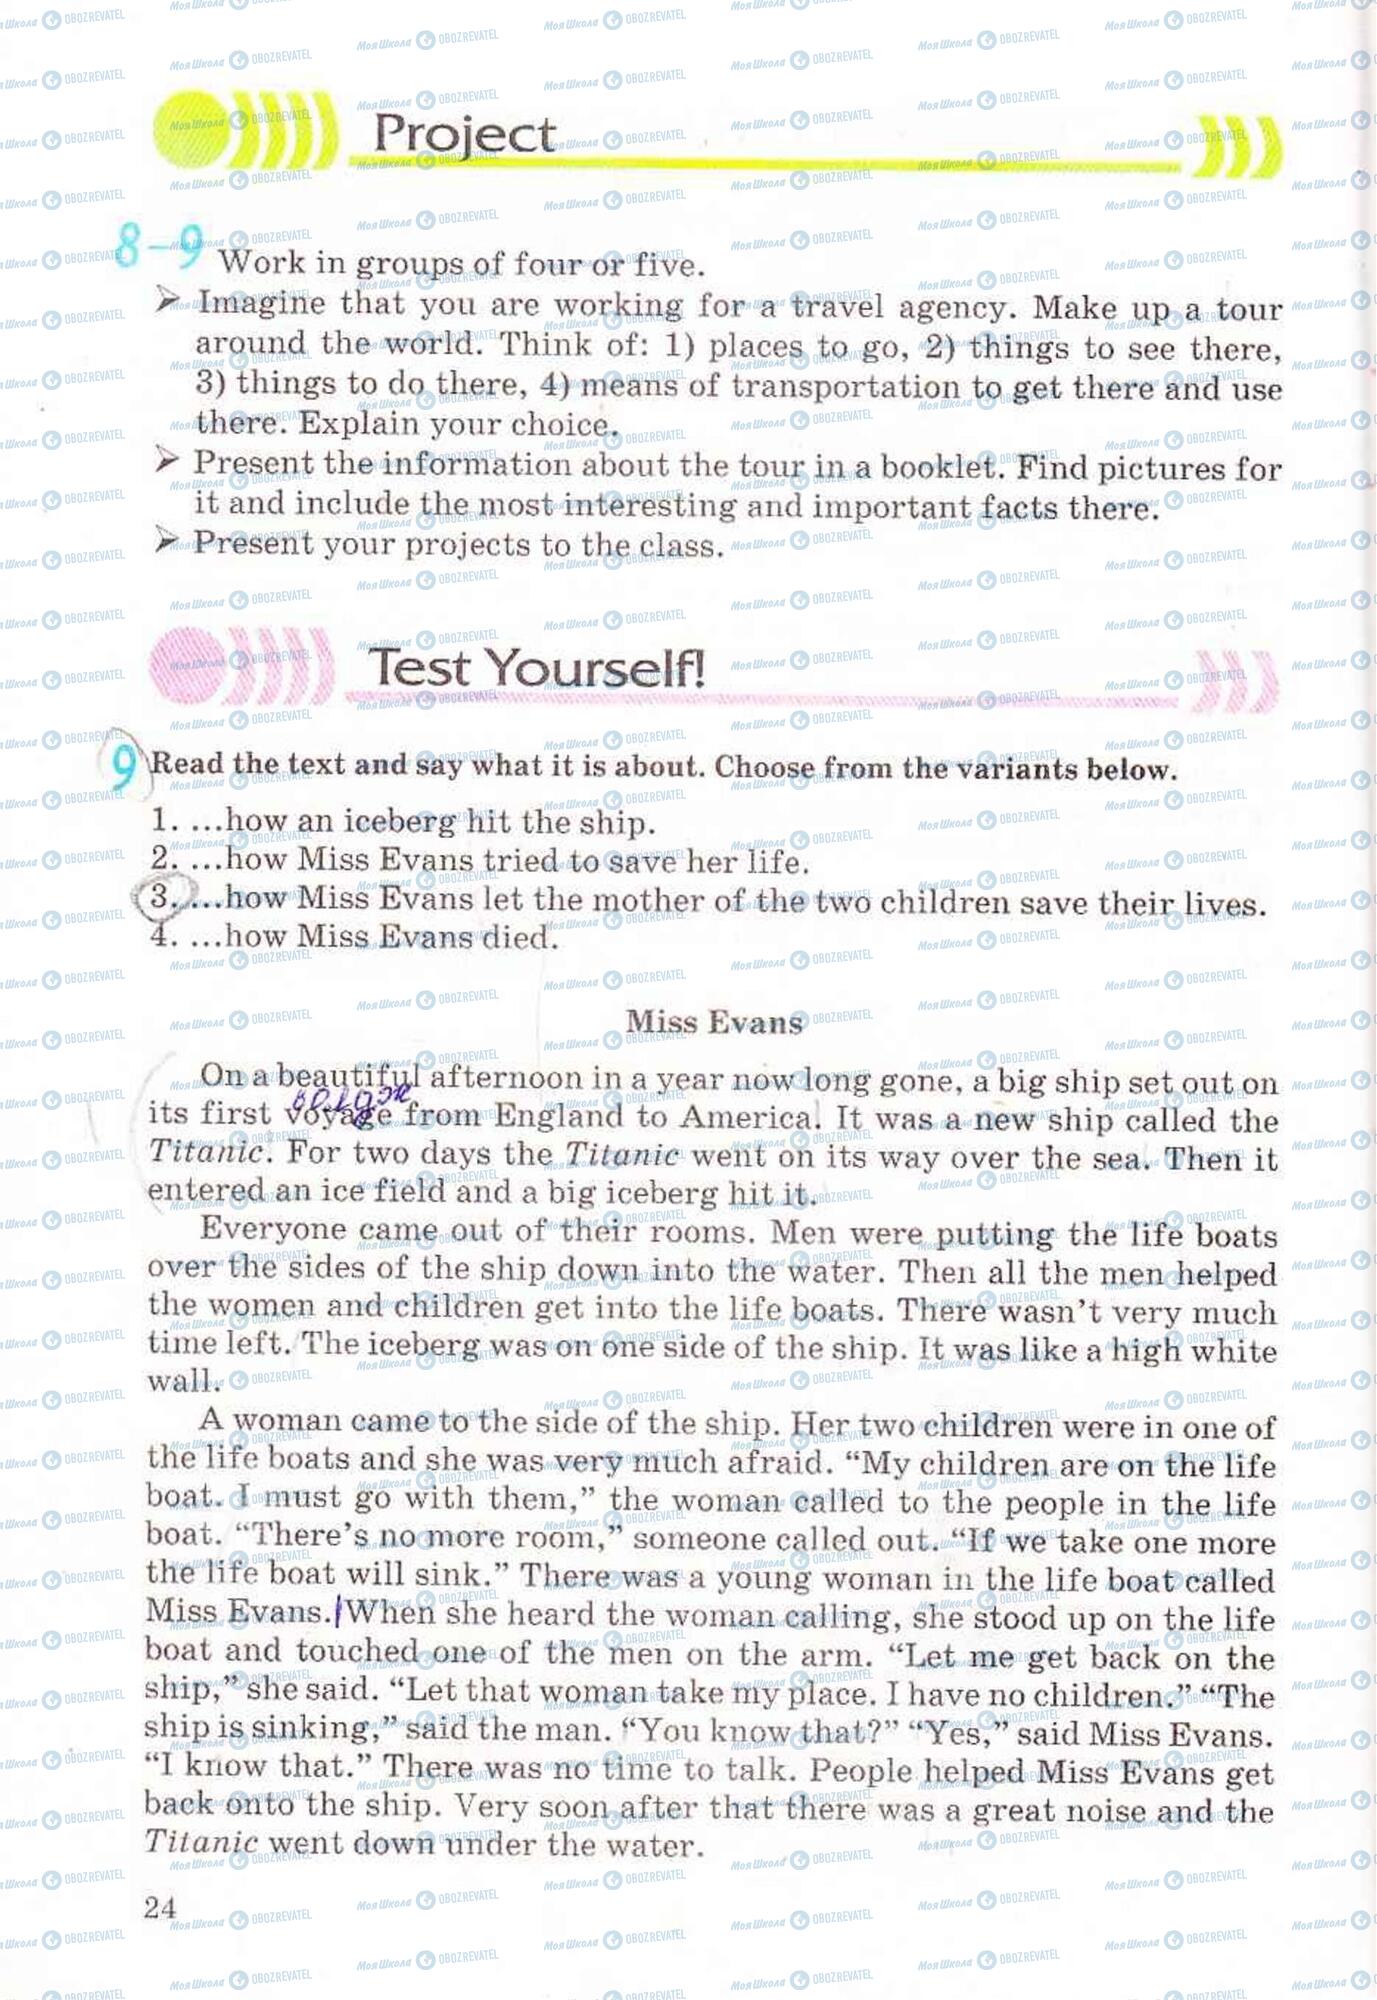 Project
8–9 Work in groups of four or five.
➢ Imagine that you are working for a travel agency. Make up a tour
around the world. Think of: 1) places to go, 2) things to see there,
3) things to do there, 4) means of transportation to get there and use
there. Explain your choice.
➢ Present the information about the tour in a booklet. Find pictures for
it and include the most interesting and important facts there.
➢ Present your projects to the class.
Test Yourself!
9 Read the text and say what it is about. Choose from the variants below.
1. ...how an iceberg hit the ship.
2. ...how Miss Evans tried to save her life.
3. ...how Miss Evans let the mother of the two children save their lives.
4. ...how Miss Evans died.
Miss Evans
On a beautiful afternoon in a year now long gone, a big ship set out on
its first voyage from England to America. It was a new ship called the
Titanic. For two days the Titanic went on its way over the sea. Then it
entered an ice field and a big iceberg hit it.
Everyone came out of their rooms. Men were putting the life boats
over the sides of the ship down into the water. Then all the men helped
the women and children get into the life boats. There wasn't very much
time left. The iceberg was on one side of the ship. It was like a high white
wall.
A woman came to the side of the ship. Her two children were in one of
the life boats and she was very much afraid. “My children are on the life
boat. I must go with them,” the woman called to the people in the life
boat. “There's no more room,” someone called out. “If we take one more
the life boat will sink.” There was a young woman in the life boat called
Miss Evans. When she heard the woman calling, she stood up on the life
boat and touched one of the men on the arm. “Let me get back on the
ship,” she said. “Let that woman take my place. I have no children.” “The
ship is sinking,” said the man. “You know that?” “Yes,” said Miss Evans.
“I know that.” There was no time to talk. People helped Miss Evans get
back onto the ship. Very soon after that there was a great noise and the
Titanic went down under the water.
24
МояШкола OBOZREVATEL